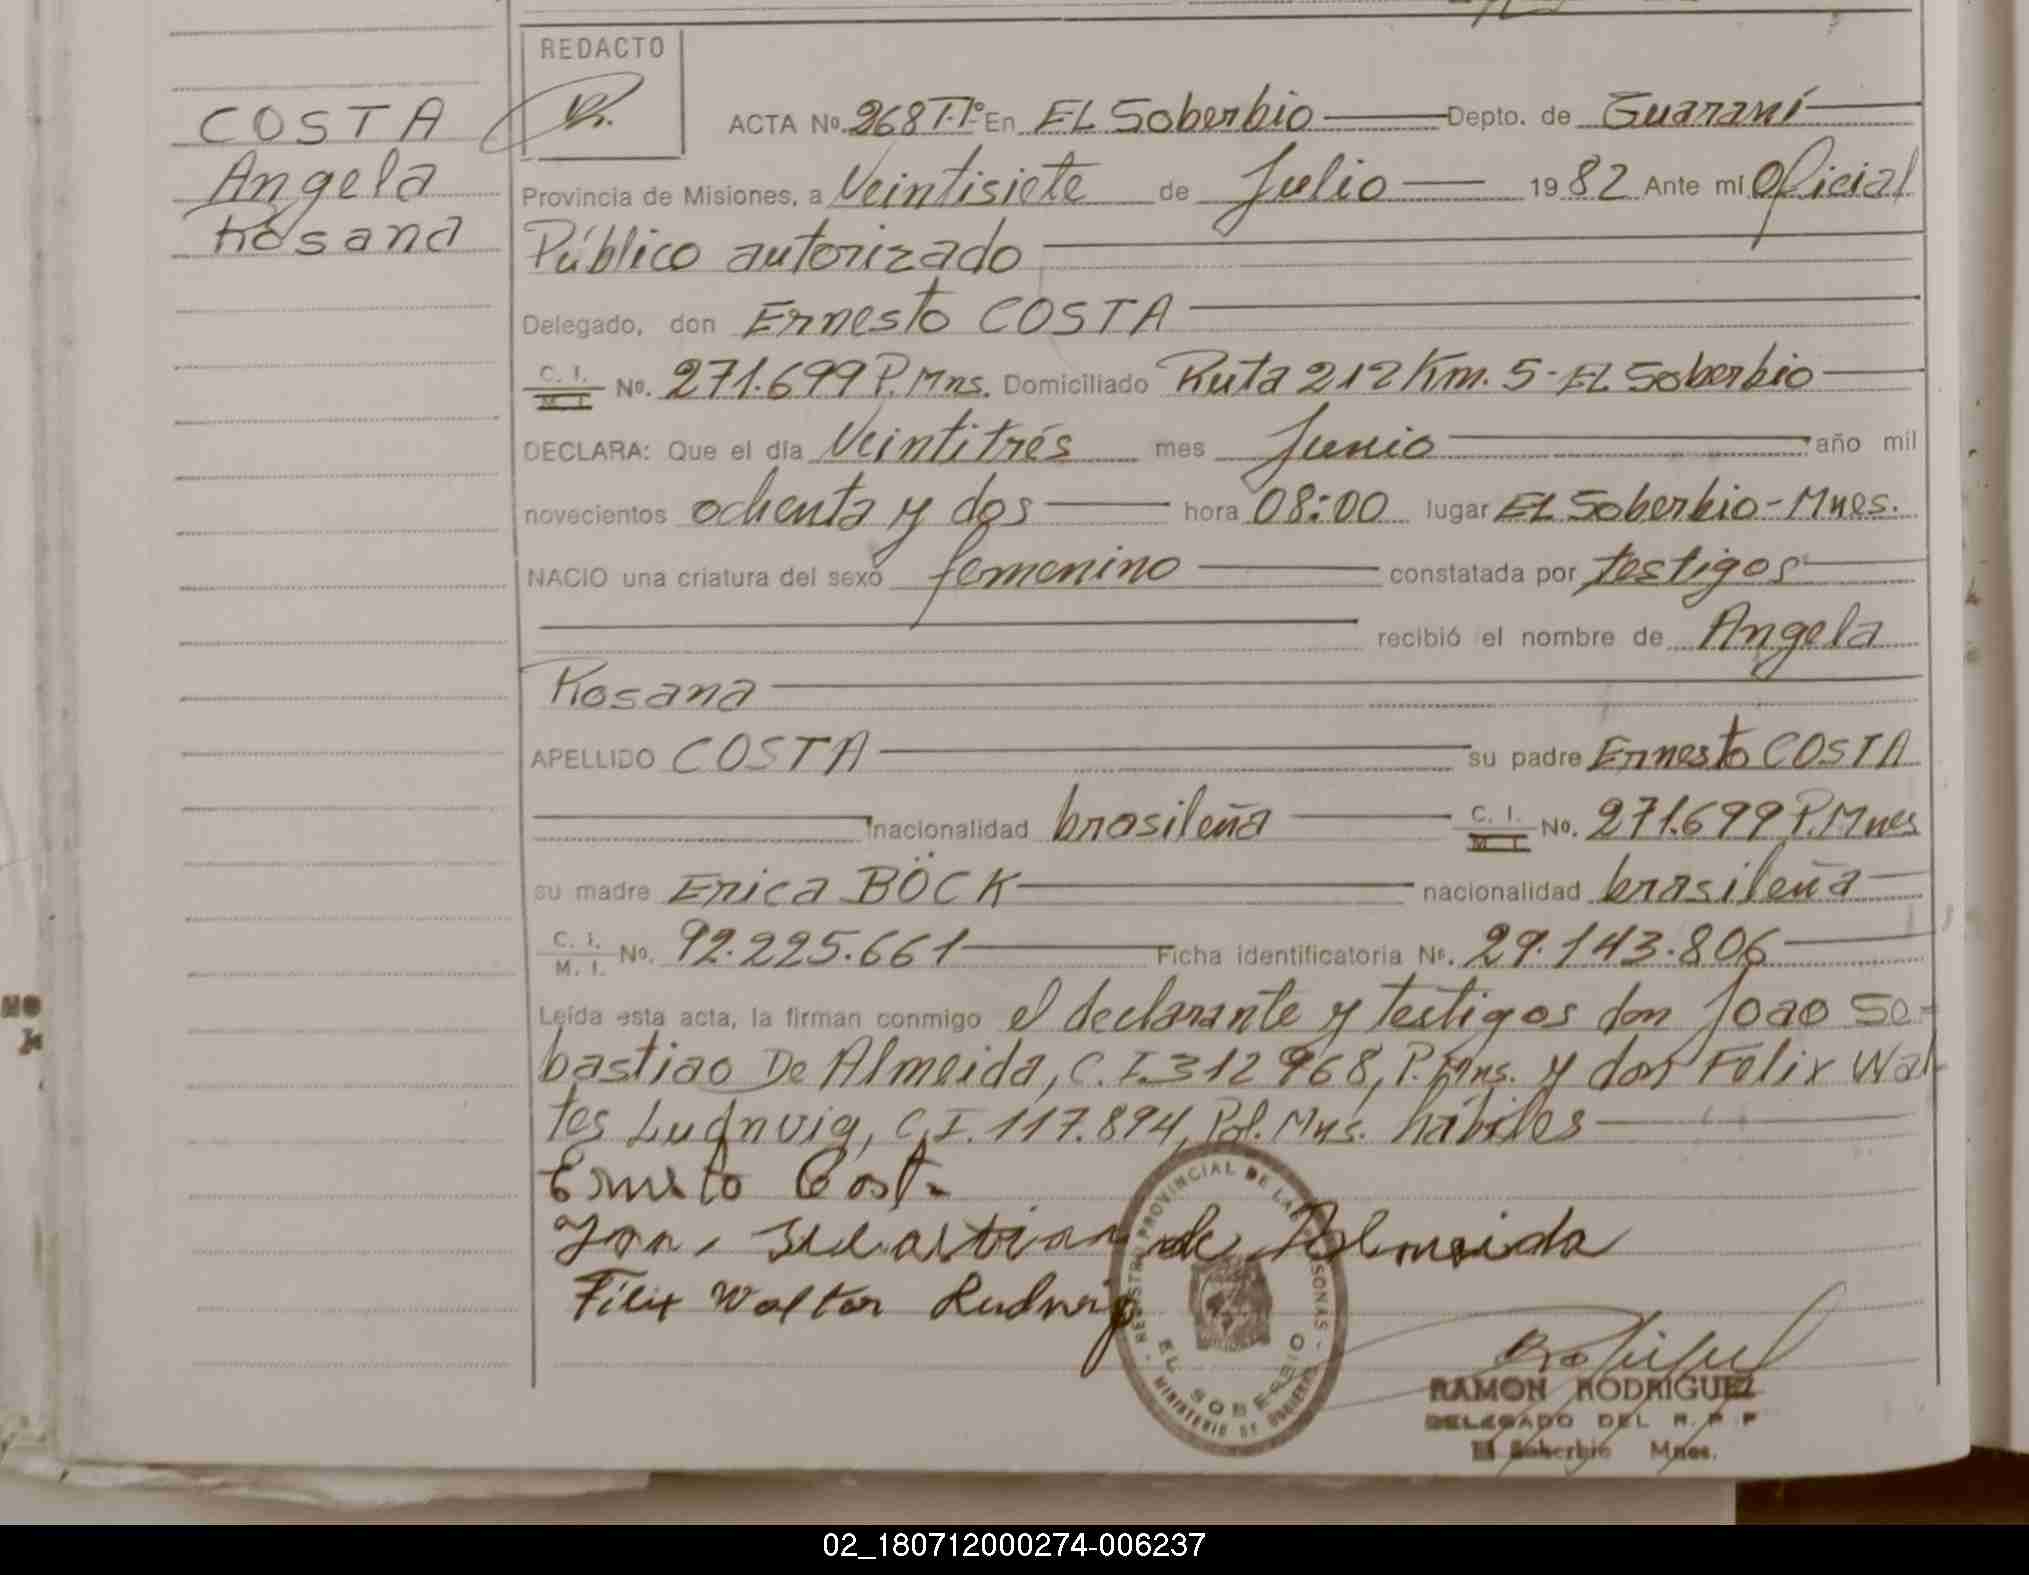 REDACTO
COSTA
Angela
Rosana
ACTA Nº. 268 T.1º En EL Soberbio Depto. de Guaraní
Provincia de Misiones, a Veintisiete de Julio 1982 Ante mí Oficial
Público autorizado
Delegado, don Ernesto COSTA
C. I. M. I. Nº. 271.699 P. Mns. Domiciliado Ruta 212 Km. 5 - EL Soberbio
DECLARA: Que el día Veintitrés mes Junio año mil
novecientos ochenta y dos hora 08:00 lugar EL Soberbio - Mnes.
NACIO una criatura del sexo femenino constatada por testigos
recibió el nombre de Angela
Rosana
APELLIDO COSTA su padre Ernesto COSTA
nacionalidad brasileña C. I. M. I. Nº. 271.699 P. Mnes
su madre Erica BÖCK nacionalidad brasileña
C. I. M. I. Nº. 92.225.661 Ficha identificatoria Nº. 29.143.806
Leída esta acta, la firman conmigo el declarante y testigos don Joao Se-
bastiao De Almeida, C. I. 312968, P. Mns. y don Felix Wal-
tes Ludnvig, C. I. 117.894, Pol. Mns. hábiles
Ernesto Costa
Sebastian de Almeida
Felix Walter Ludwig
REGISTRO PROVINCIAL DE LAS PERSONAS
EL SOBERBIO
MINISTERIO DE GOBIERNO
RAMON RODRIGUEZ
DELEGADO DEL R. P. P
El Soberbio Mnes.
02_180712000274-006237